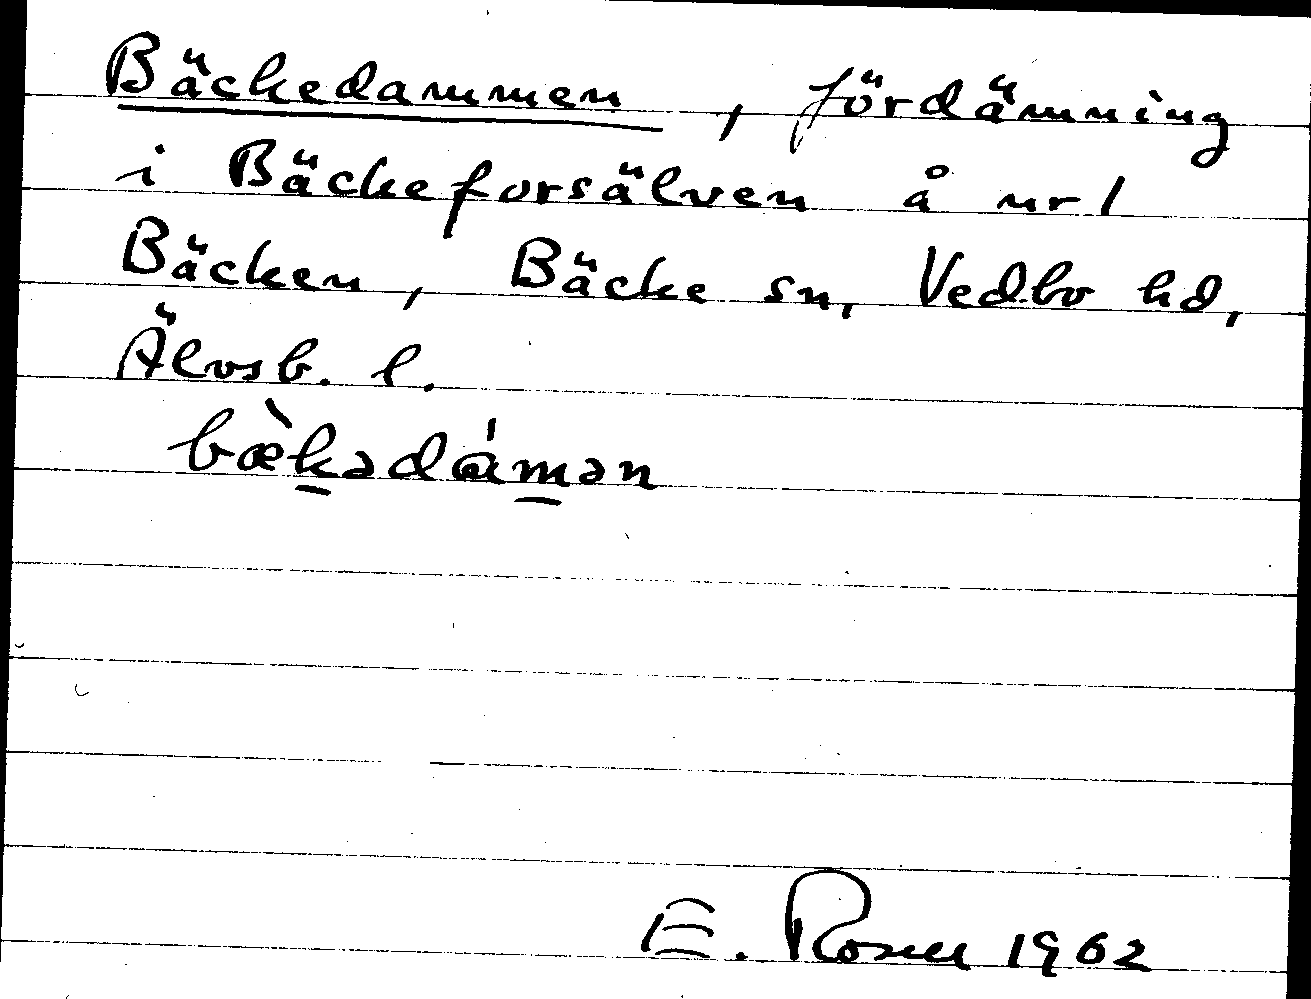 Bäckedammen, fördämning
i Bäckeforsälven å nr 1
Bäcken, Bäcke sn, Vedbo hd,
Älvsb. l.
bæ̀k̲ədám̲ən
E. Rosell 1962